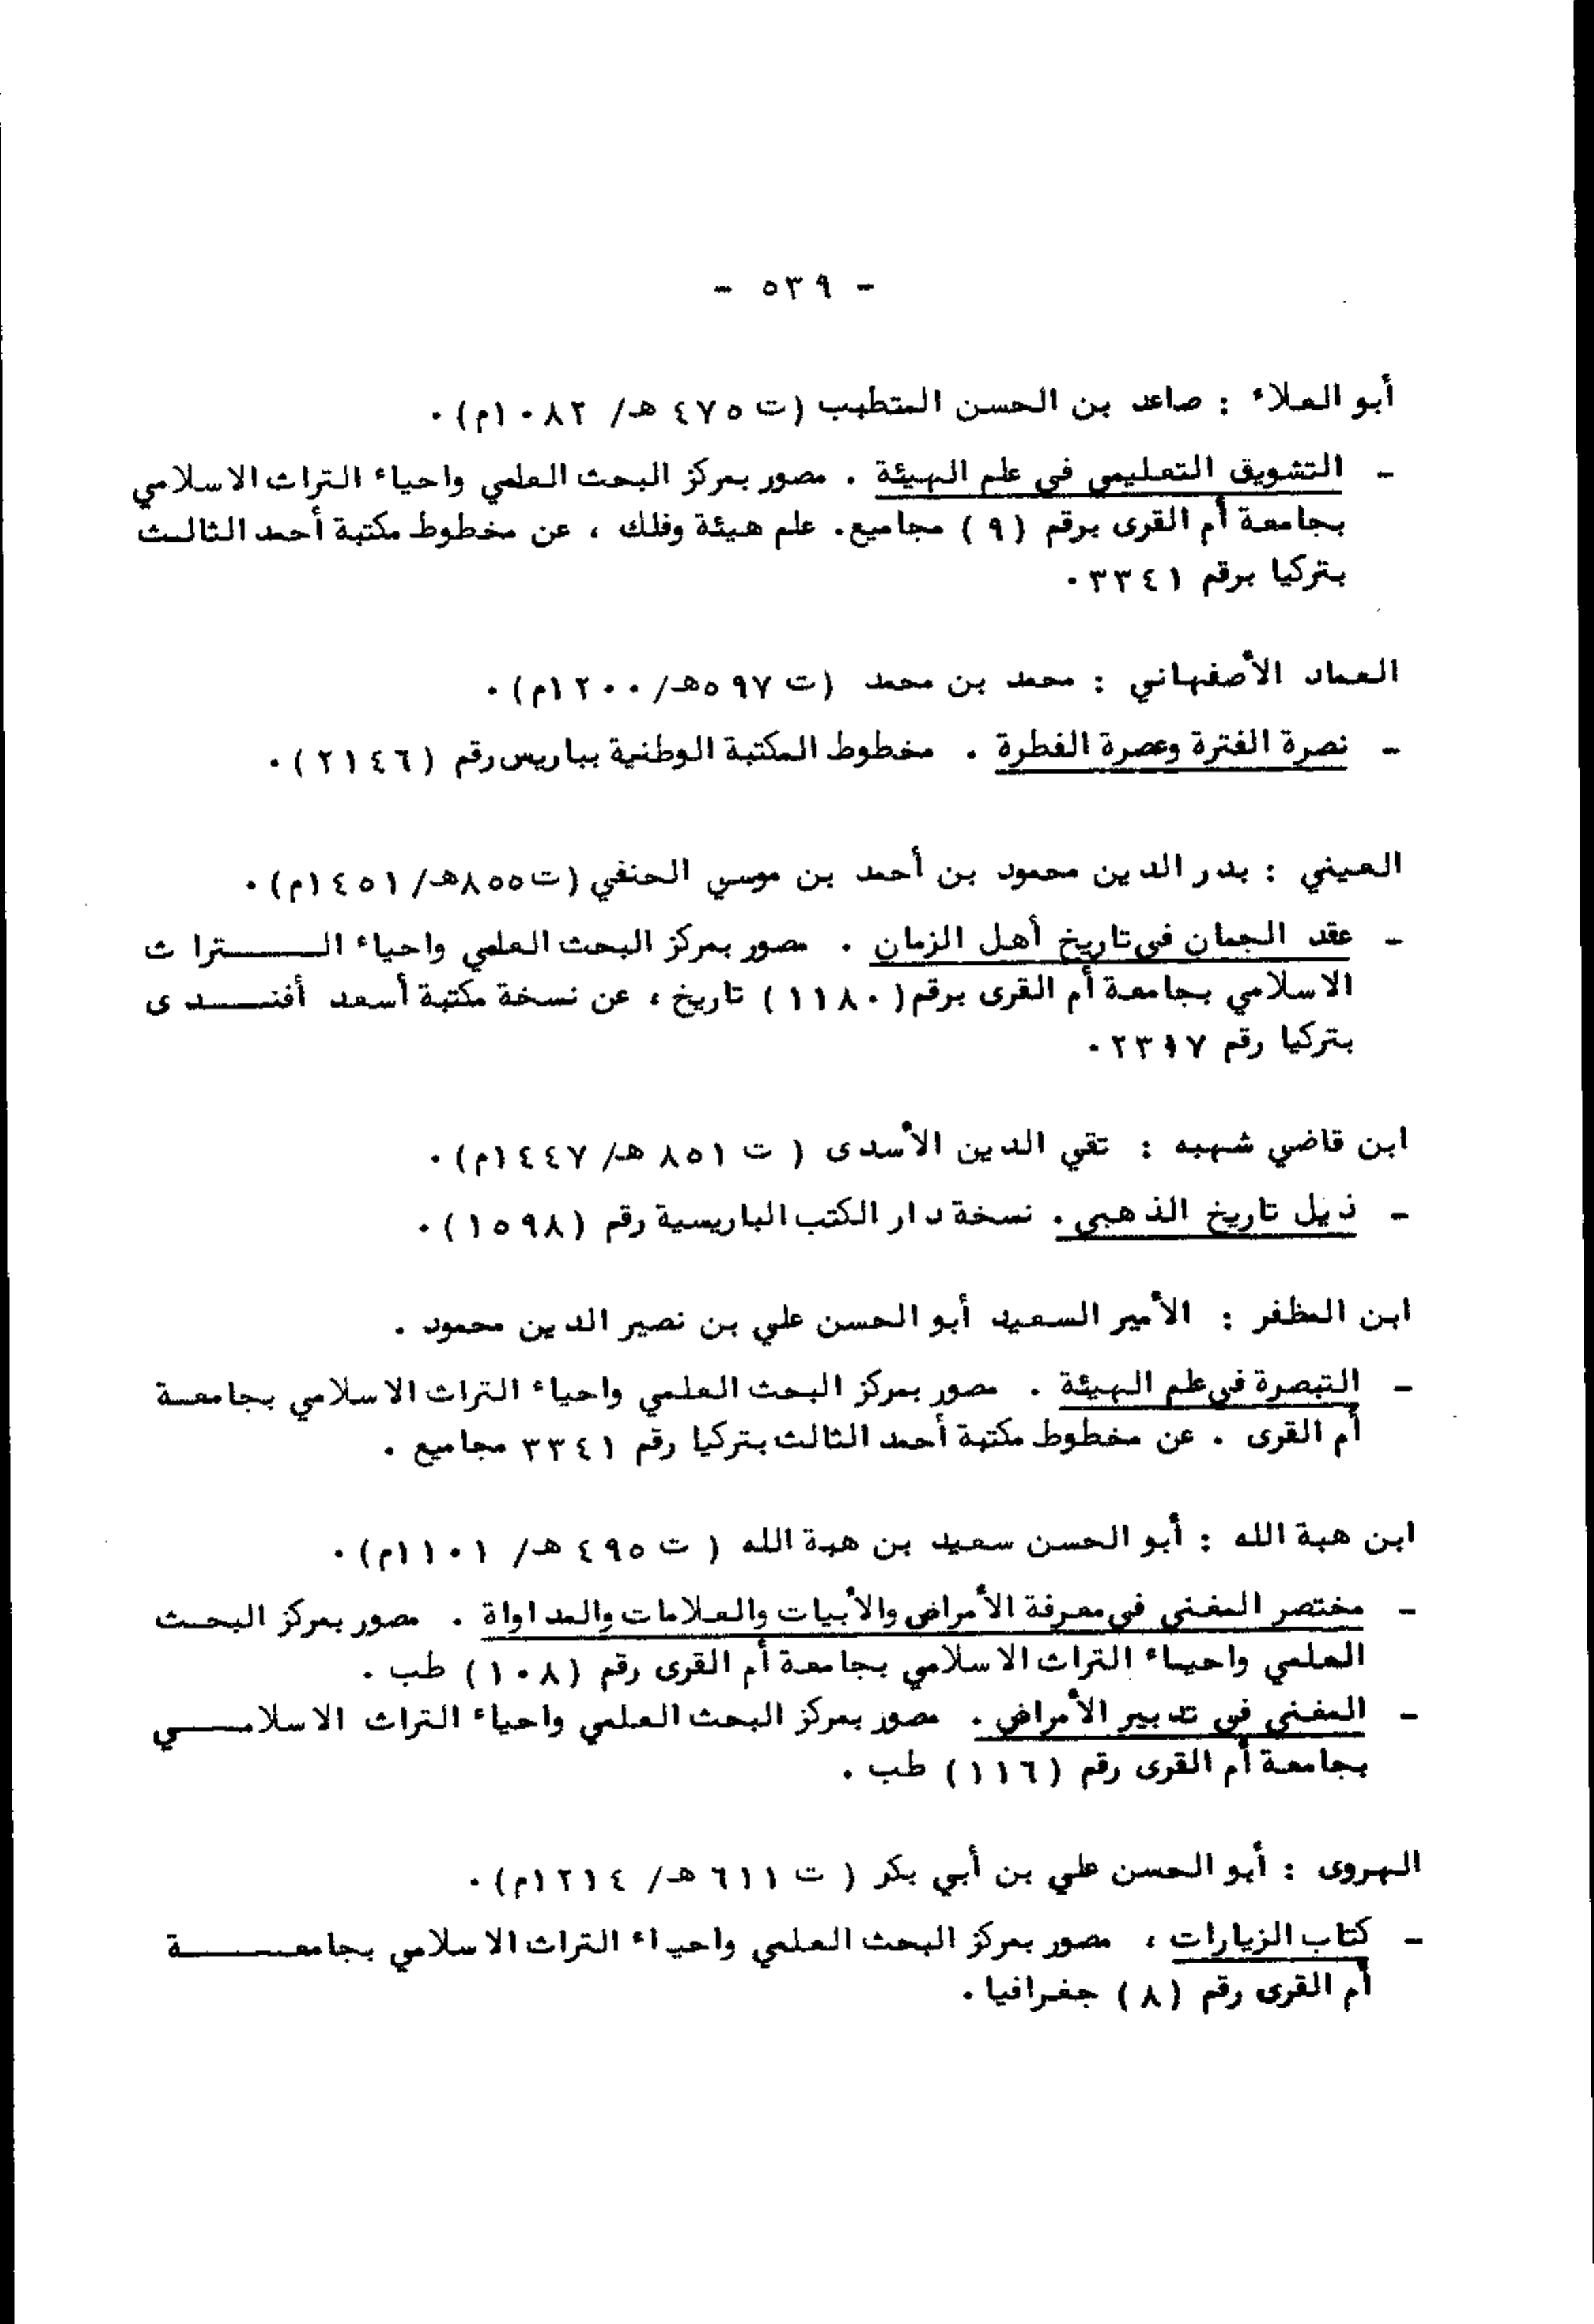 - ٥٣٩ -
أبو العلاء : صاعد بن الحسن المتطبب (ت ٤٧٥ هـ/ ١٠٨٢م) ٠
- التشويق التعليمى فى علم الهيئة . مصور بمركز البحث العلمي واحياء التراث الاسلامي
بجامعة أم القرى برقم (٩) مجاميع. علم هيئة وفلك ، عن مخطوط مكتبة أحمد الثالث
بتركيا برقم ٣٣٤١ ٠
العماد الأصفهاني : محمد بن محمد (ت ٥٩٧هـ/ ١٢٠٠م) ٠
- نصرة الفترة وعصرة الفطرة . مخطوط المكتبة الوطنية بباريس رقم (٢١٤٦) ٠
العيني : بدر الدين محمود بن أحمد بن موسي الحنفي (ت ٨٥٥هـ/ ١٤٥١م) ٠
- عقد الجمان فى تاريخ أهل الزمان . مصور بمركز البحث العلمي واحياء الـــــتراث
الاسلامي بجامعة أم القرى برقم (١١٨٠) تاريخ ، عن نسخة مكتبة أسعد أفنــــدى
بتركيا رقم ٢٣١٧ ٠
ابن قاضي شهبه : تقي الدين الأسدى ( ت ٨٥١ هـ/ ١٤٤٧م) ٠
- ذيل تاريخ الذهبى . نسخة دار الكتب الباريسية رقم (١٥٩٨) ٠
ابن المظفر : الأمير السعيد أبو الحسن علي بن نصير الدين محمود .
- التبصرة فى علم الهيئة . مصور بمركز البحث العلمي واحياء التراث الاسلامي بجامعـة
أم القرى . عن مخطوط مكتبة أحمد الثالث بتركيا رقم ٣٣٤١ مجاميع .
ابن هبة الله : أبو الحسن سعيد بن هبة الله ( ت ٤٩٥ هـ/ ١١٠١م) ٠
- مختصر المغنى فى معرفة الأمراض والأبيات والعلامات والمداواة . مصور بمركز البحـث
العلمي واحيـاء التراث الاسلامي بجامعة أم القرى رقم (١٠٨) طب .
- المغنى فى تدبير الأمراض . مصور بمركز البحث العلمي واحياء التراث الاسلامــــي
بجامعة أم القرى رقم (١١٦) طب .
الهروى : أبو الحسن علي بن أبي بكر ( ت ٦١١ هـ/ ١٢١٤م) ٠
- كتاب الزيارات ، مصور بمركز البحث العلمي واحياء التراث الاسلامي بجامعـــــــة
أم القرى رقم (٨) جغرافيا .